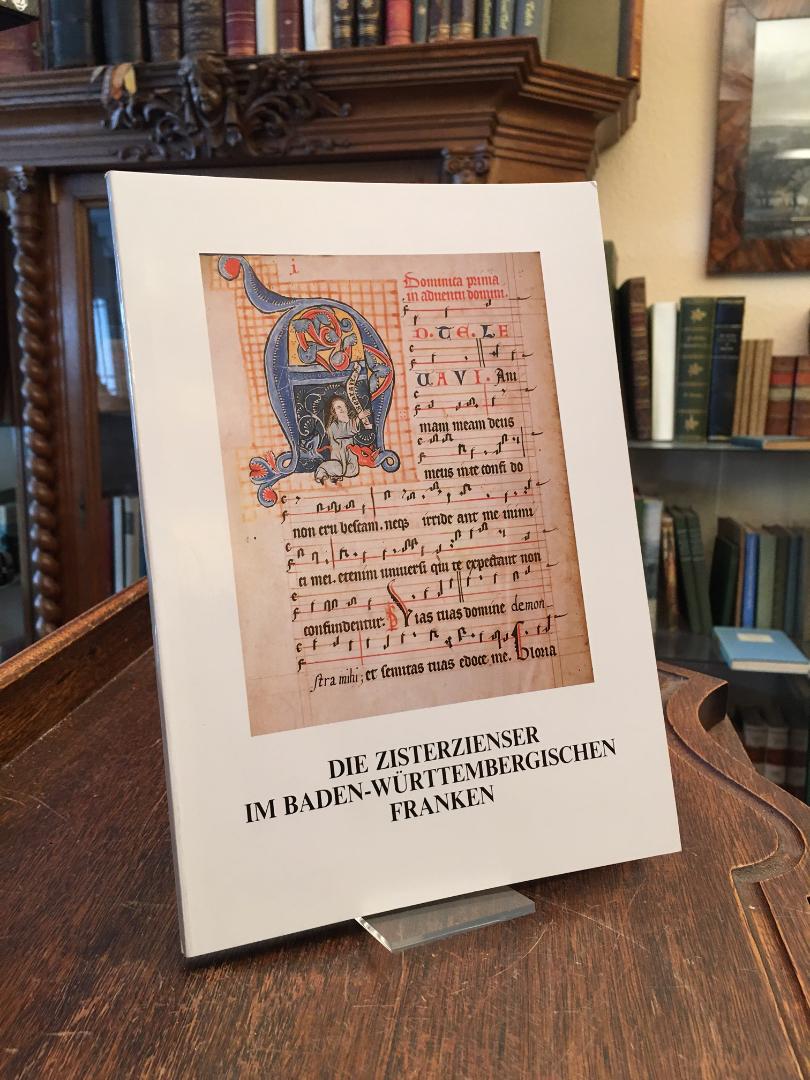 i
Dominica prima
in adventu domini.
D. T E. L E
U A V I. Am
mam meam deus
meus in te confi do
non eru bescam. neqȝ irride ant me inimi
ci mei. etenim universi qui te expectant non
confundentur. Vias tuas domine demon
stra mihi; et semitas tuas edoce me. Gloria
DIE ZISTERZIENSER
IM BADEN-WÜRTTEMBERGISCHEN
FRANKEN